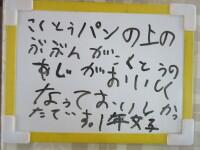 こくとうパンの上の
ぶぶんが、こくとうの
あじがおいしく
なっておいしかっ
たです。1年文子